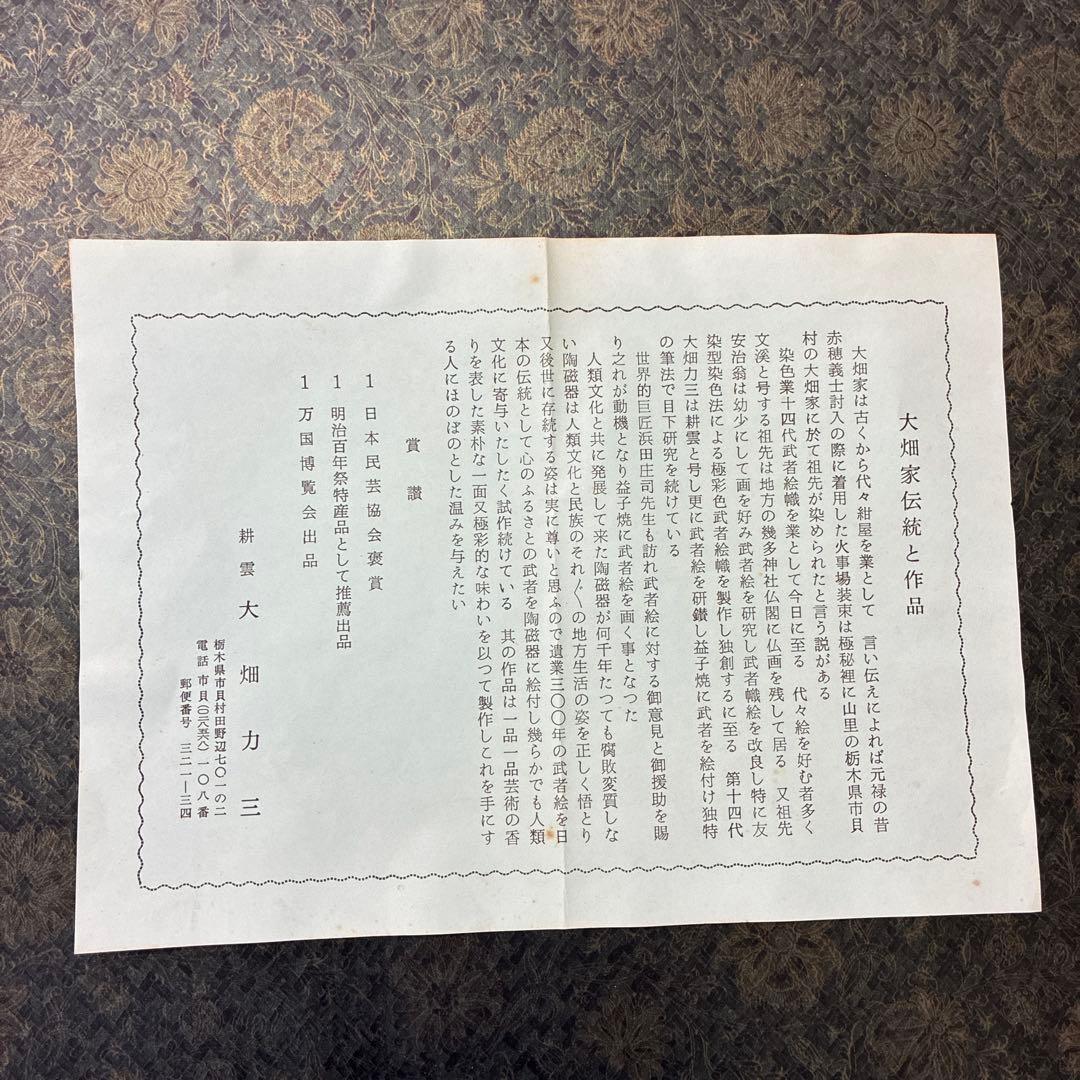 大畑家伝統と作品
大畑家は古くから代々紺屋を業として　言い伝えによれば元禄の昔
赤穂義士討入の際に着用した火事場装束は極秘裡に山里の栃木県市貝
村の大畑家に於て祖先が染められたと言う説がある
染色業十四代武者絵幟を業として今日に至る　代々絵を好む者多く
文溪と号する祖先は地方の幾多神社仏閣に仏画を残して居る　又祖先
安治翁は幼少にして画を好み武者絵を研究し武者幟絵を改良し特に友
染型染色法による極彩色武者絵幟を製作し独創するに至る　第十四代
大畑力三は耕雲と号し更に武者絵を研鑚し益子焼に武者を絵付け独特
の筆法で目下研究を続けている
世界的巨匠浜田庄司先生も訪れ武者絵に対する御意見と御援助を賜
り之れが動機となり益子焼に武者絵を画く事となつた
人類文化と共に発展して来た陶磁器が何千年たつても腐敗変質しな
い陶磁器は人類文化と民族のそれ〲の地方生活の姿を正しく悟とり
又後世に存続する姿は実に尊いと思ふので遺業三〇〇年の武者絵を日
本の伝統として心のふるさとの武者を陶磁器に絵付し幾らかでも人類
文化に寄与いたしたく試作続けている　其の作品は一品一品芸術の香
りを表した素朴な一面又極彩的な味わいを以つて製作しこれを手にす
る人にほのぼのとした温みを与えたい
賞讃
1 日本民芸協会褒賞
1 明治百年祭特産品として推薦出品
1 万国博覧会出品
耕雲 大畑力三
栃木県市貝村田野辺七〇一の二
電話 市貝(〇二八五六八)一〇八番
郵便番号 三二一ー三四